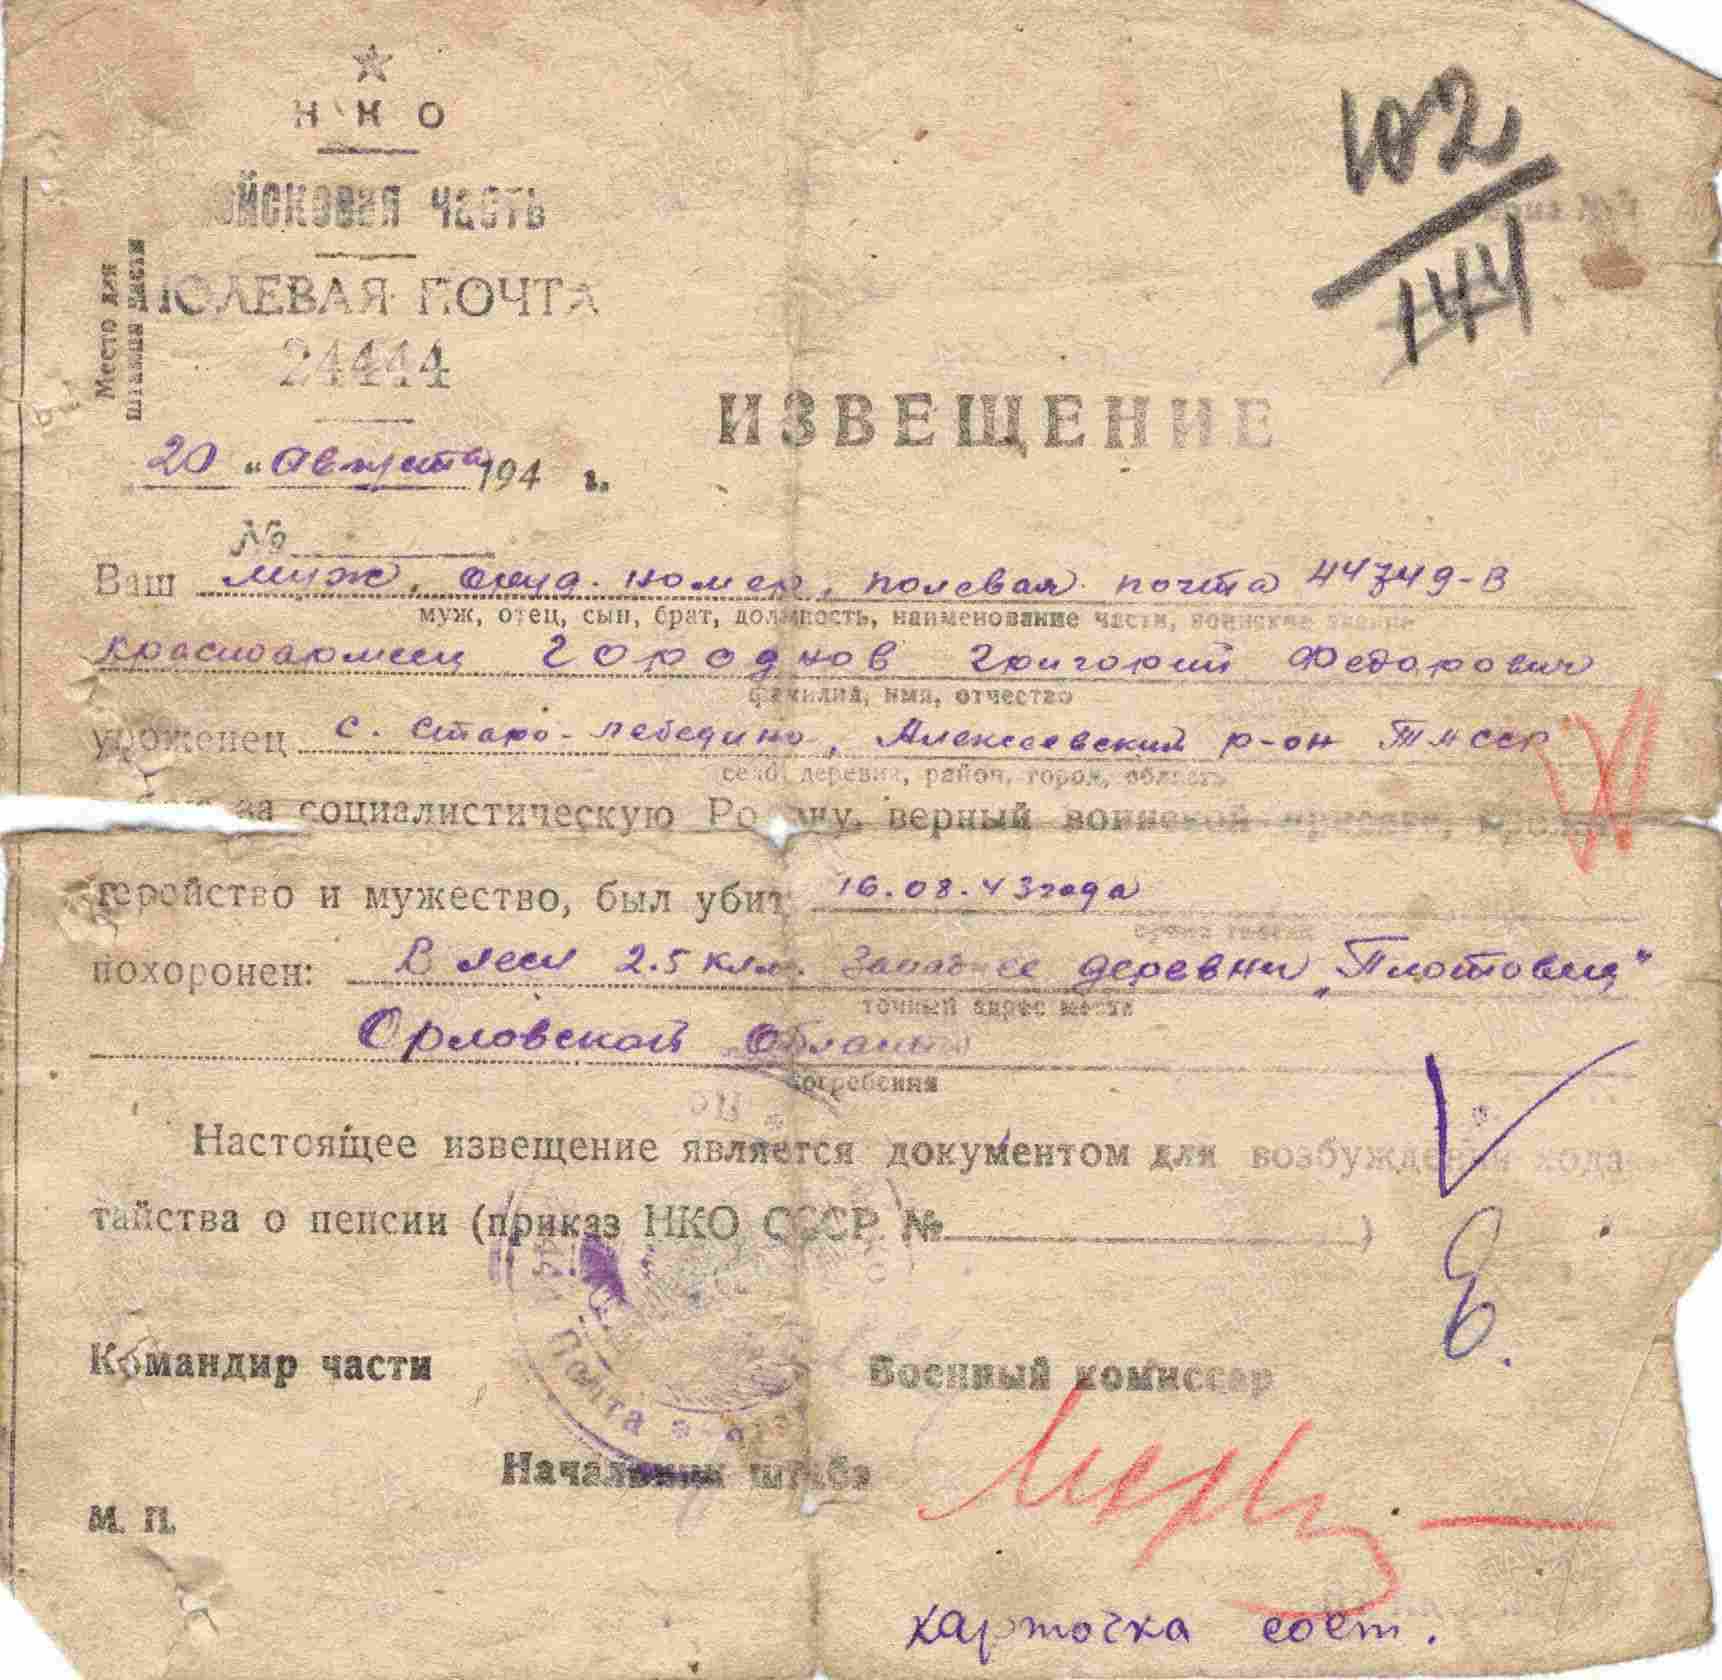 НКО
ВОЙСКОВАЯ ЧАСТЬ
ПОЛЕВАЯ ПОЧТА
24444
Место для
штампа части
102
144
ИЗВЕЩЕНИЕ
20 " Августа 194 г.
№
Ваш муж, номер, полевая почта 44749-В
муж, отец, сын, брат, должность, наименование части, воинское звание
красноармеец Городнов Григорий Федорович
фамилия, имя, отчество
уроженец с. Старо-Лебедино, Алексеевский р-он ТАССР
село, деревня, район, город, область
за социалистическую Родину, верный воинской присяге,
геройство и мужество, был убит 16.08.43 года
похоронен: В лесу 2.5 клм. Западнее деревни „Плотовец"
точный адрес места
Орловской Области
погребения
Настоящее извещение является документом для возбуждения хода-
тайства о пенсии (приказ НКО СССР № )
Командир части
Военный комиссар
Почта
Начальник штаба
М. П.
карточка сост.